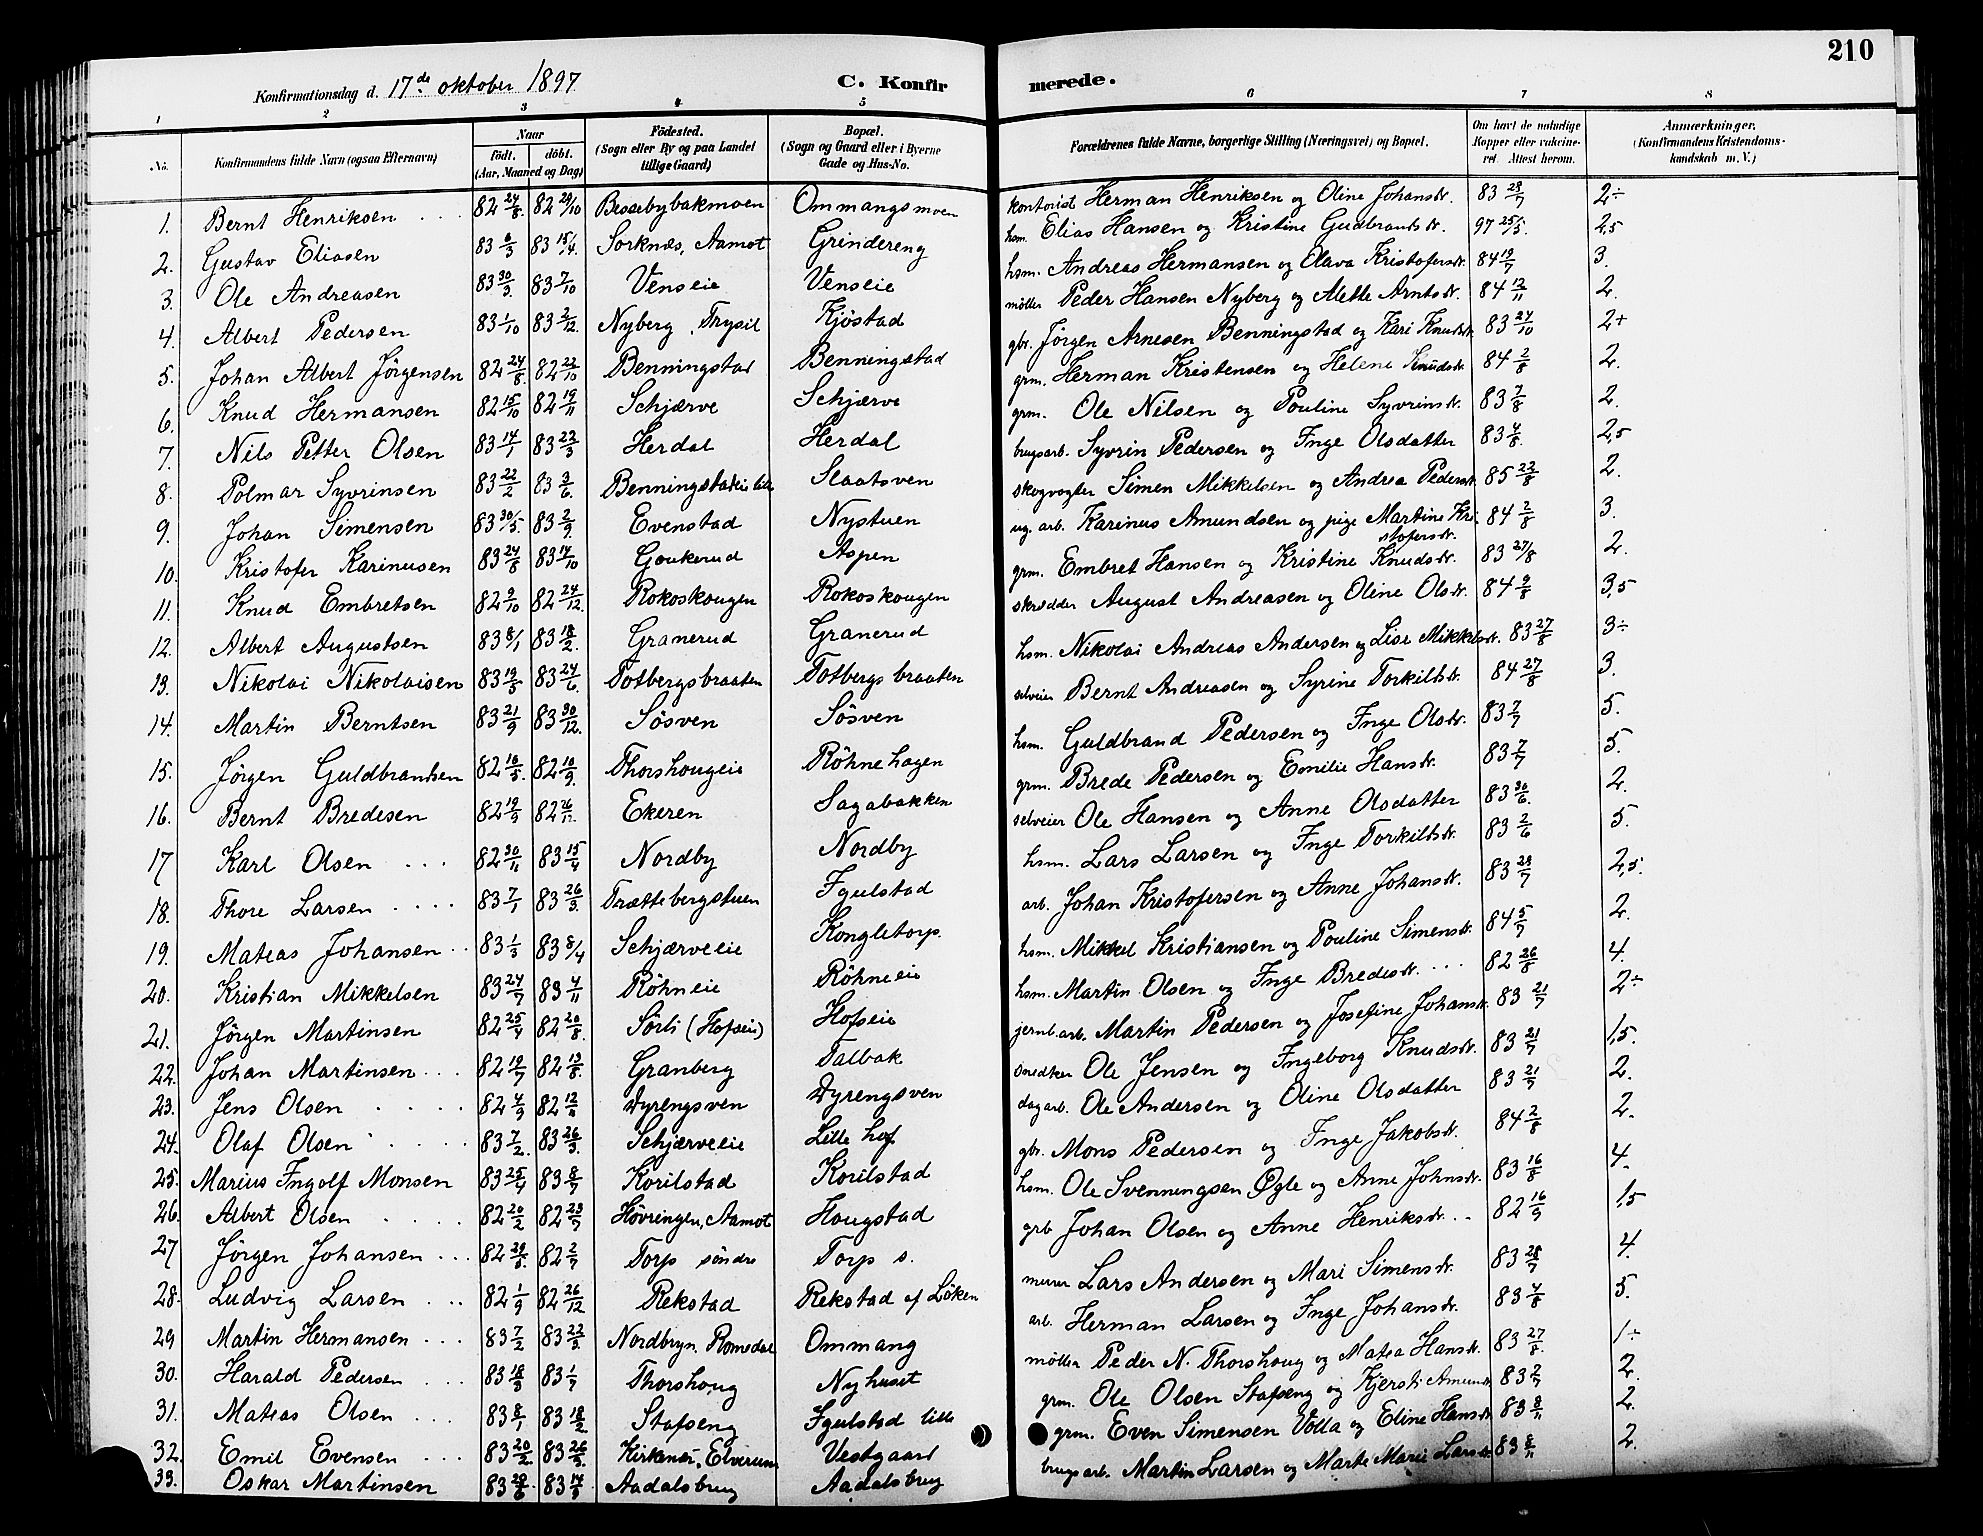 210
Konfirmationsdag d. 17de oktober 1897. C. Konfirmerede.
1 2 3 4 5 6 7 8
No. Konfirmandens fulde Navn (ogsaa Efternavn) Naar födt. döbt. (Aar, Maaned og Dag) Födested. (Sogn eller By og paa Landet tillige Gaard) Bopæl. (Sogn og Gaard eller i Byerne Gade og Hus-No. Forældrenes fulde Navne, borgerlige Stilling (Næringsvei) og Bopæl. Om havt de naturlige Kopper eller vakcineret. Attest herom. Anmærkninger. (Konfirmandens Kristendomskundskab m. V.)
1. Bernt Henriksen 82 24/8 82 29/10 Bessebybakmoen Ommangsmoen kontorist Herman Henriksen og Oline Johansdr. 83 28/7 2÷
2. Gustav Eliasen 83 6/3 83 15/4 Sorknæs, Aamot Grindereng hsm. Elias Hansen og Kristine Gudbrandsdr. 97 25/5 2,5
3. Ole Andreasen 83 30/3 83 7/10 Venseie Venseie hsm. Andreas Hermansen og Olava Kristofersdr. 84 19/7 3.
4. Albert Pedersen 83 1/10 83 2/12 Nyberg, Trysil Kjöstad möller Peder Hansen Nyberg og Alette Arntsdr. 84 12/11 2.
5. Johan Albert Jörgensen 82 24/8 82 22/10 Benningstad Benningstad gbr. Jörgen Arnesen Benningstad og Kari Knudsdr. 83 24/10 2+
6. Knud Hermansen 82 15/10 82 19/11 Schjærve Schjærve grm. Herman Kristensen og Helene Knudsdr. 84 2/8 2.
7. Nils Petter Olsen 83 14/1 83 22/3 Herdal Herdal grm. Ole Nilsen og Pouline Syvrinsdr. 83 7/8 2.
8. Polmar Syvrinsen 83 22/2 83 3/6 Benningstadeie lille Slaatsven brugsarb. Syvrin Pedersen og Inge Olsdatter 83 4/8 2,5
9. Johan Simensen 83 30/5 83 2/9 Evenstad Nystuen skogvogter Simen Mikkelsen og Andrea Pedersdr. 85 22/8 2.
10. Kristofer Karinusen 83 24/8 83 14/10 Goukerud Aspen ug. arb. Karinus Amundsen og pige Martine Kristofersdr. 84 2/8 3.
11. Knud Embretsen 82 9/10 82 24/12 Rokoskougen Rokoskougen grm. Embret Hansen og Kristine Knudsdr. 83 27/8 2.
12. Albert Augustsen 83 8/1 83 18/2 Granerud Granerud skrædder August Andreasen og Oline Olsdr. 84 9/8 3,5
13. Nikolai Nikolaisen 83 19/5 83 24/6 Totbergsbraaten Totbergsbraaten hsm. Nikolai Andreas Andersen og Lise Mikkelsdr. 83 27/8 3÷
14. Martin Berntsen 83 21/9 83 30/12 Sösven Sösven selveier Bernt Andreasen og Syrine Torkildsdr. 84 27/8 3.
15. Jörgen Guldbrandsen 82 16/5 82 10/9 Thorshougeie Röhnehagen hsm. Guldbrand Pedersen og Inge Olsdr. 83 7/7 5.
16. Bernt Bredesen 82 19/9 82 26/12 Ekeren Sagabakken grm. Brede Pedersen og Emilie Hansdr. 83 7/7 5.
17 Karl Olsen 82 30/11 83 15/4 Nordby Nordby selveier Ole Hansen og Anne Olsdatter 83 30/6 2.
18. Thore Larsen 83 7/1 83 26/3 Trættebergstuen Igulstad hsm. Lars Larsen og Inge Torkildsdr. 83 2/6 5.
19. Mateas Johansen 83 1/3 83 8/4 Schjærveeie Kongletorp. arb. Johan Kristofersen og Anne Johansdr. 83 28/7 2,5.
20. Kristian Mikkelsen 83 24/7 83 4/11 Röhneie Röhneeie hsm. Mikkel Kristiansen og Pouline Simensdr. 84 5/7 2.
21. Jörgen Martinsen 82 25/4 82 20/8 Sörli (Hofseie) Hofseie hsm. Martin Olsen og Inge Bredesdr. 82 26/8 4.
22. Johan Martinsen 82 19/7 82 13/8 Granberg Talbak jernb. arb. Martin Pedersen og Josefine Johansdr. 83 21/7 2÷
23. Jens Olsen 82 4/9 82 12/11 Dyrengsven Dyrengsven snedker Ole Jensen og Ingeborg Knudsdr. 83 21/7 1,5.
24. Olaf Olsen 83 7/2 83 26/3 Schjærveeie Lille hof dagarb. Ole Andersen og Oline Olsdatter 83 21/7 2.
25. Marius Ingolf Monsen 83 25/4 83 8/7 Korilstad Korilstad gbr. Mons Pedersen og Inge Jakobsdr. 84 2/8 2.
26. Albert Olsen 82 20/2 82 23/7 Hövringen, Aamot Hougstad hsm. Ole Svenningsen Ögle og Anne Johnsdr. 83 16/8 4.
27 Jörgen Johansen 82 29/5 82 2/7 Torp söndre Torp s. grb Johan Olsen og Anne Henriksdr. 82 16/9 1,5
28. Ludvig Larsen 82 1/9 82 26/12 Rekstad Rekstad af Löken murer Lars Andersen og Mari Simensdr. 83 28/7 4.
29 Martin Hermansen 83 7/2 83 22/3 Nordbryn. Romsdal Ommang arb. Herman Larsen og Inge Johansdr. 83 4/8 5.
30. Harald Pedersen 83 18/3 83 1/7 Thorshoug Nyhuset möller Peder N. Thorshoug og Matea Hansdr. 83 27/8 1÷
31. Mateas Olsen 83 8/1 83 18/2 Stafseng Igulstad lille grm. Ole Olsen Stafseng og Kjersti Amundsdr. 83 2/7 2.
32. Emil Evensen 83 20/2 83 26/3 Kirkenær, Elverum Vestgaard grm. Even Simensen Volla og Eline Hansdr. 83 8/11 2.
33. Oskar Martinsen 83 29/6 83 14/9 Aadalsbrug Aadalsbrug brugsarb. Martin Larsen og Marte Marie Larsdr. 83 8/11 2.